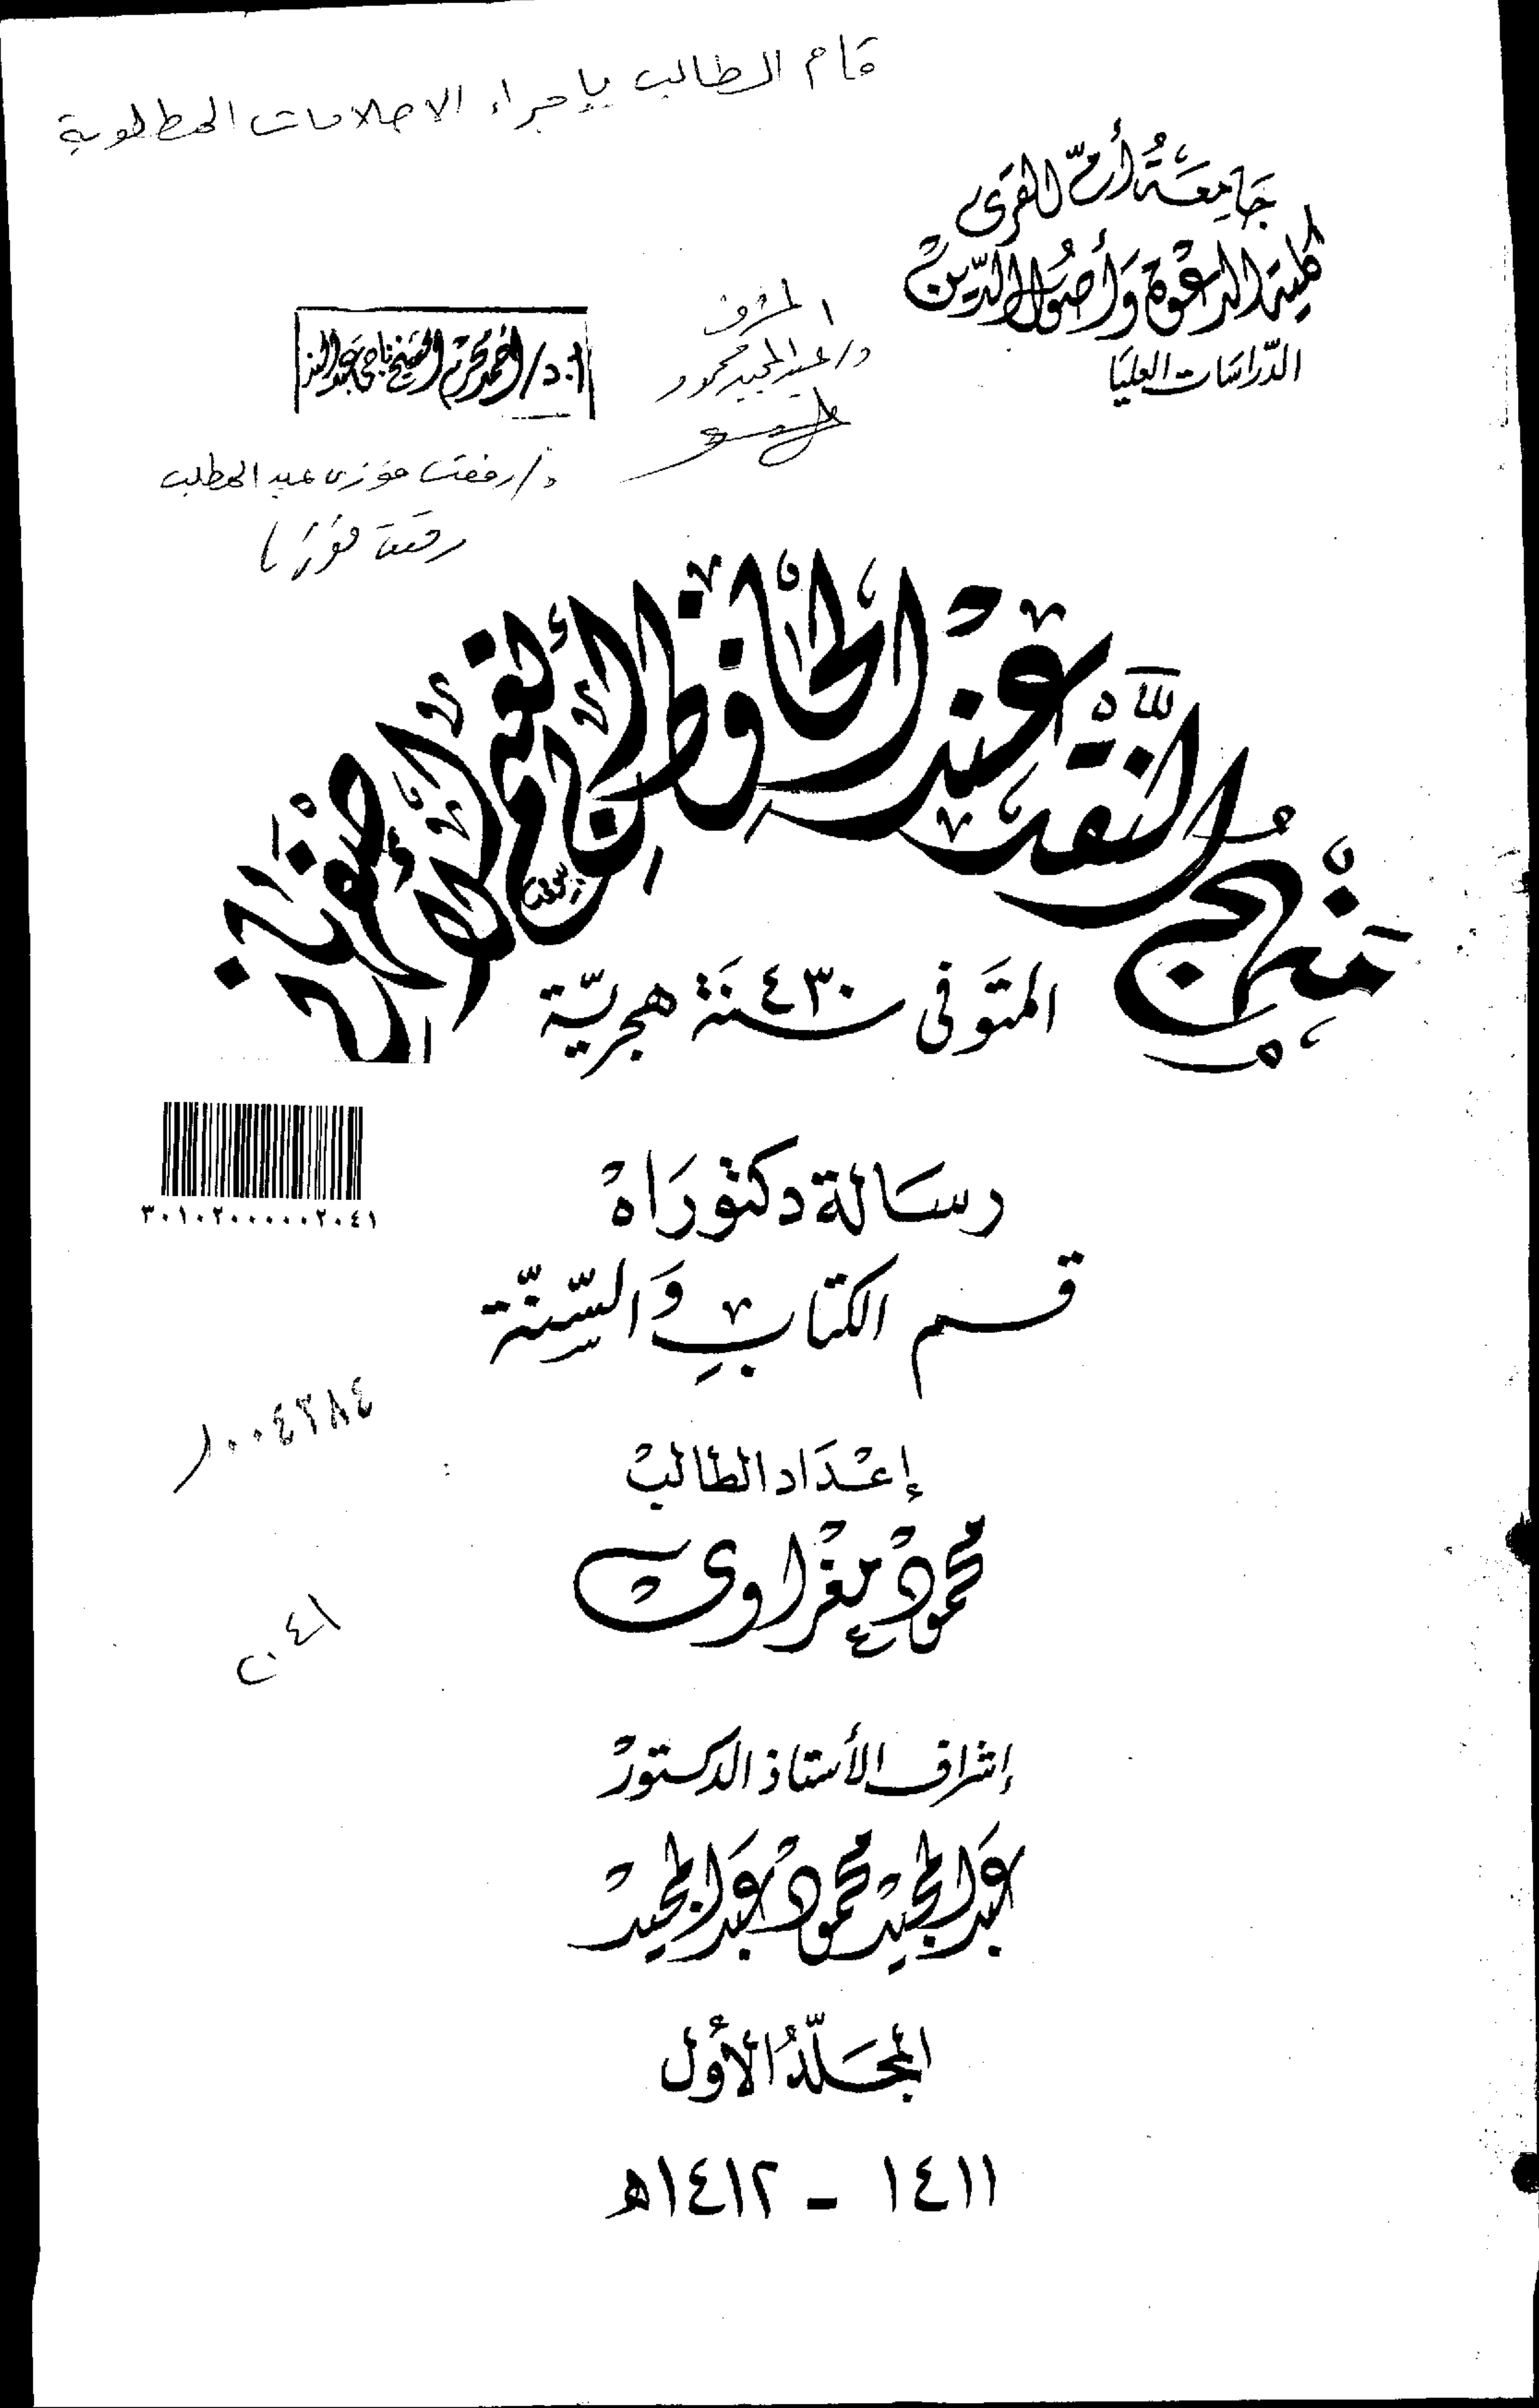 قام الطالب بإجراء الاصلاحات المطلوبة
جَامِعَةُ أمّ القرى
كلية الدعْوة وَأصُول الدّينْ
الدّراسَات العليَا
المشرف
د/عبد المجيد محمود
د/رفعت فوزى عبد المطلب
رفعت فوزى
مَنْهجُ النَّقد عنْد الحَافِظ أبي نعَيم الأصْفهَاني
المتَوفى سنَة ٤٣٠ هجريّة
٣٠١٠٢٠٠٠٠٠٢٠٤١
رسَالة دكتورَاهْ
قسم الكتابِ وَالسّنّة
١٠٠٤٣٨٤
إعْدَاد الطالبْ
محمودْ مغْراوي
٢٠٤١
إشراف الأستاذ الدكتورْ
عبَد المجيدْ محمودْ عبَد المجيدْ
المجَلّدُ الأوُل
١٤١١ - ١٤١٢ه